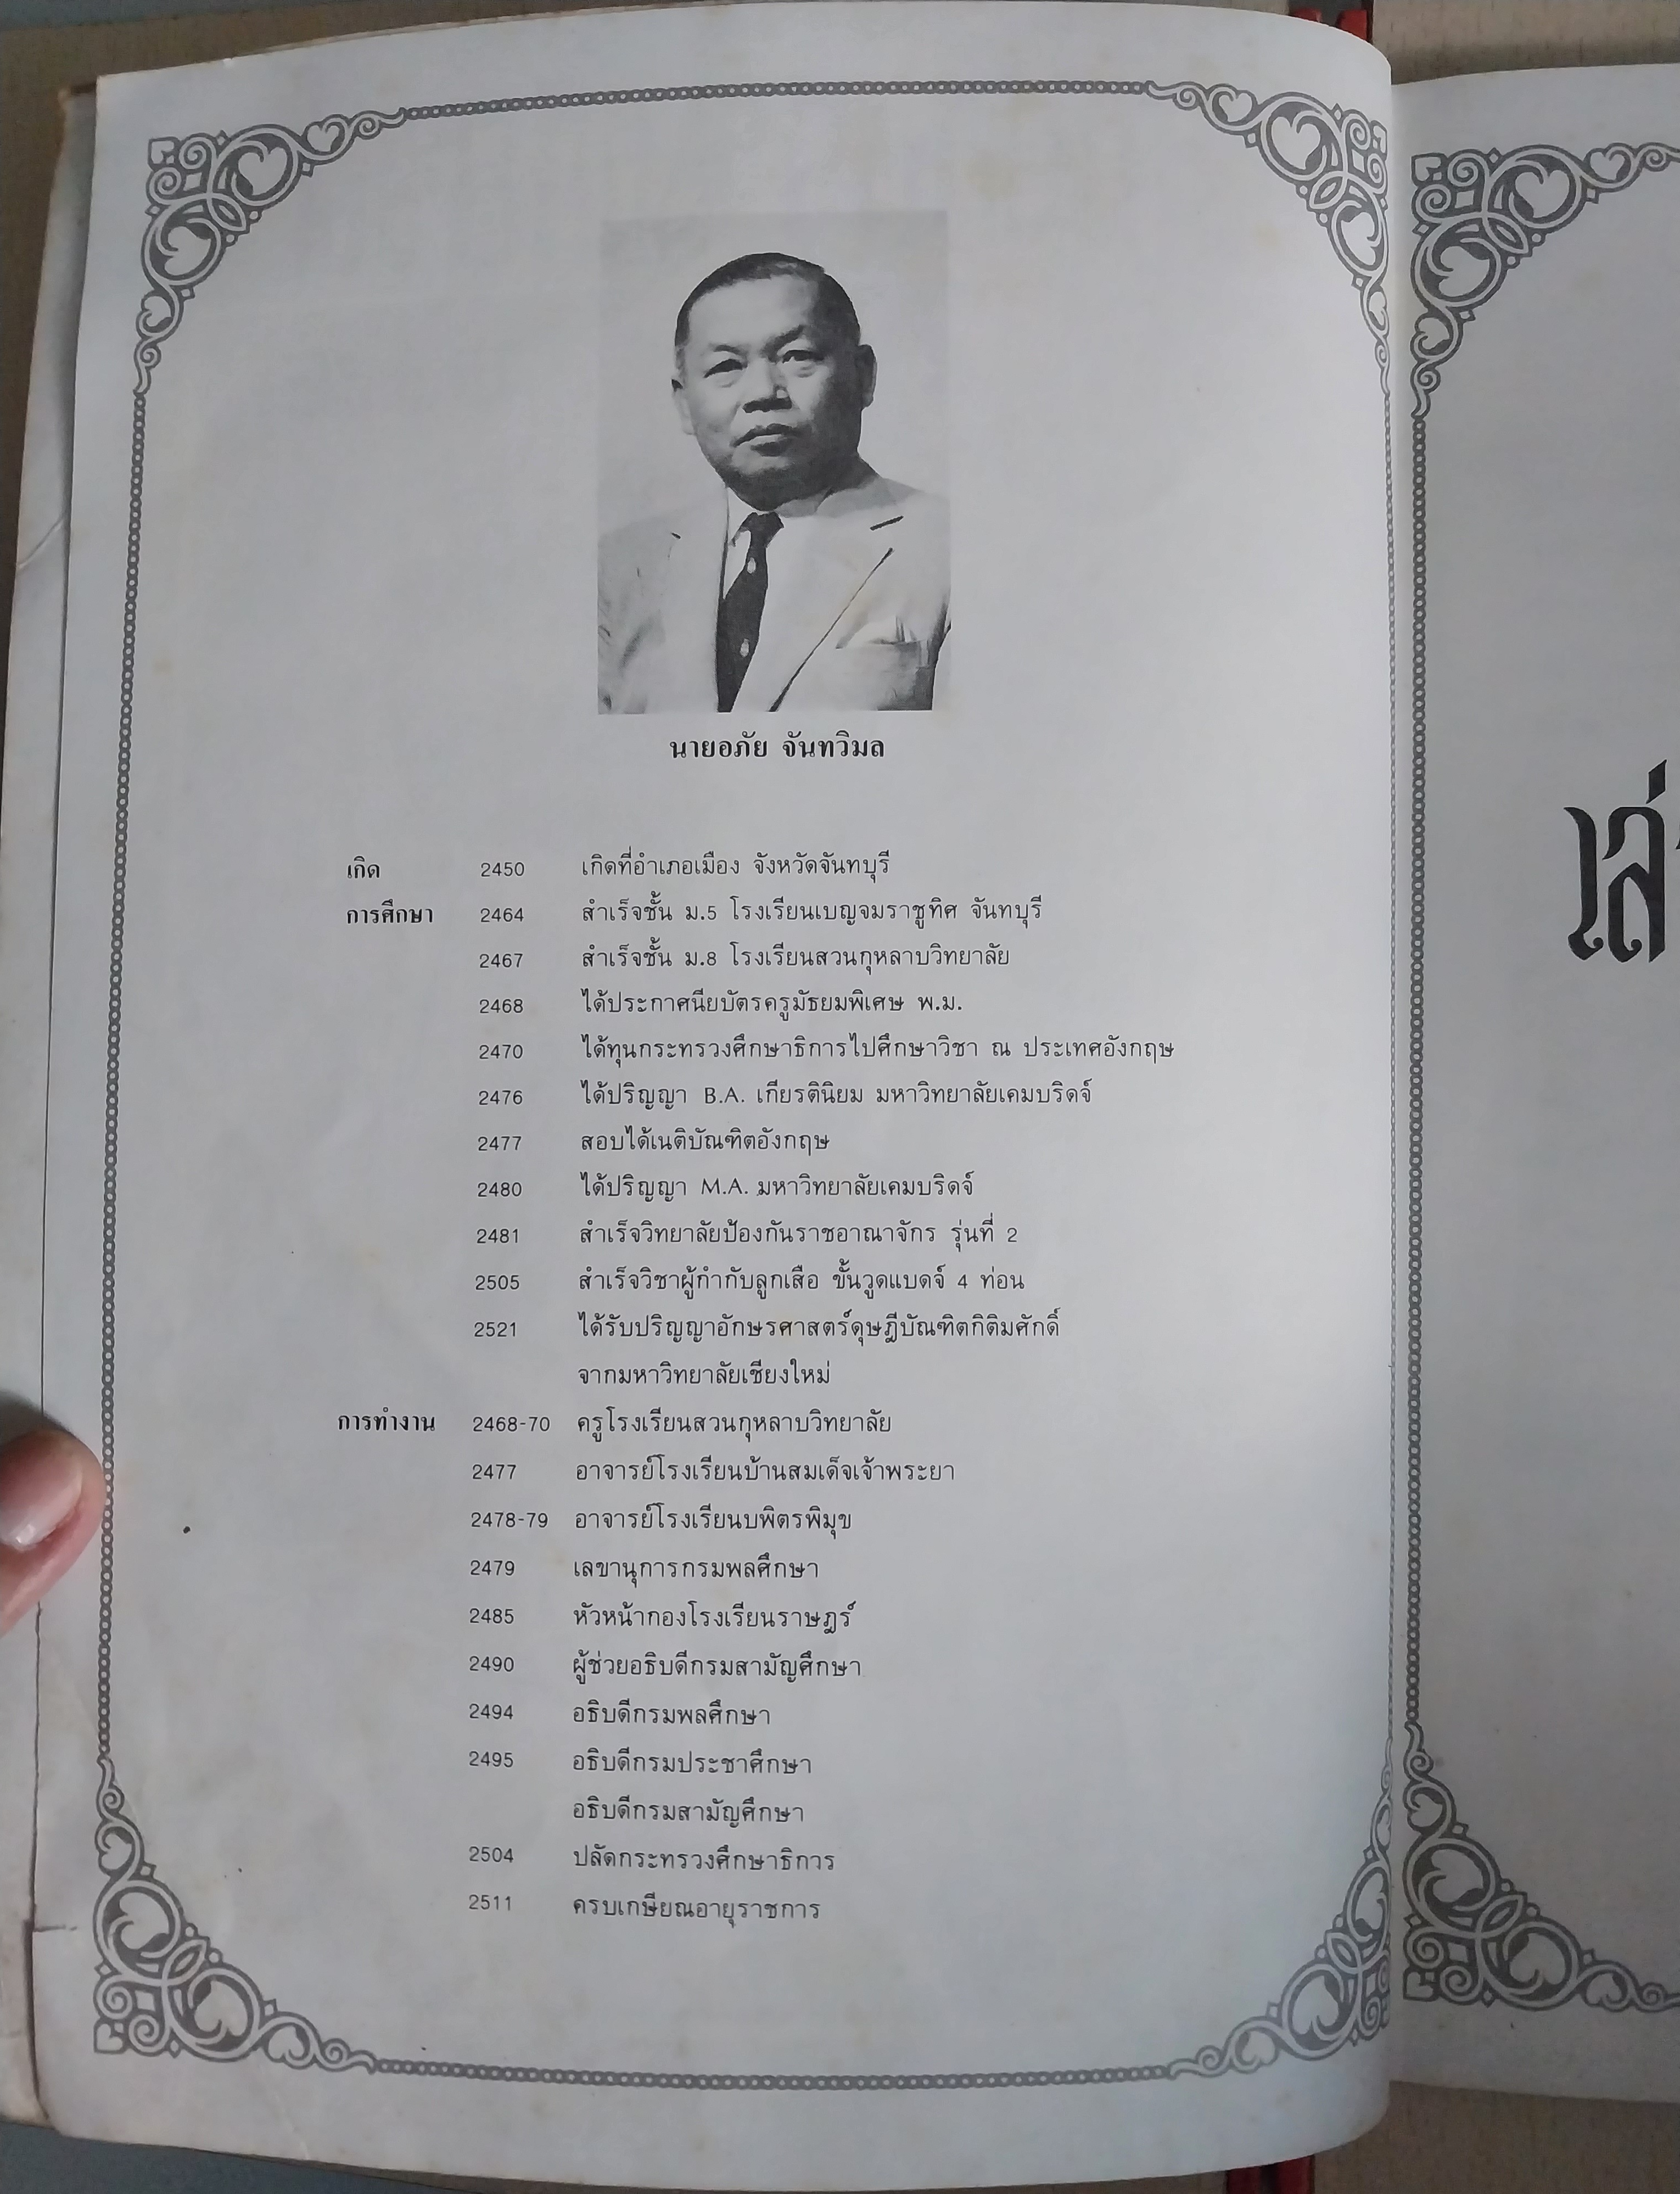 นายอภัย จันทวิมล
เกิด 2450 เกิดที่อำเภอเมือง จังหวัดจันทบุรี
การศึกษา 2464 สำเร็จชั้น ม.5 โรงเรียนเบญจมราชูทิศ จันทบุรี
2467 สำเร็จชั้น ม.8 โรงเรียนสวนกุหลาบวิทยาลัย
2468 ได้ประกาศนียบัตรครูมัธยมพิเศษ พ.ม.
2470 ได้ทุนกระทรวงศึกษาธิการไปศึกษาวิชา ณ ประเทศอังกฤษ
2476 ได้ปริญญา B.A. เกียรตินิยม มหาวิทยาลัยเคมบริดจ์
2477 สอบได้เนติบัณฑิตอังกฤษ
2480 ได้ปริญญา M.A. มหาวิทยาลัยเคมบริดจ์
2481 สำเร็จวิทยาลัยป้องกันราชอาณาจักร รุ่นที่ 2
2505 สำเร็จวิชาผู้กำกับลูกเสือ ขั้นวูดแบดจ์ 4 ท่อน
2521 ได้รับปริญญาอักษรศาสตร์ดุษฎีบัณฑิตกิติมศักดิ์
จากมหาวิทยาลัยเชียงใหม่
การทำงาน 2468-70 ครูโรงเรียนสวนกุหลาบวิทยาลัย
2477 อาจารย์โรงเรียนบ้านสมเด็จเจ้าพระยา
2478-79 อาจารย์โรงเรียนบพิตรพิมุข
2479 เลขานุการกรมพลศึกษา
2485 หัวหน้ากองโรงเรียนราษฎร์
2490 ผู้ช่วยอธิบดีกรมสามัญศึกษา
2494 อธิบดีกรมพลศึกษา
2495 อธิบดีกรมประชาศึกษา
อธิบดีกรมสามัญศึกษา
2504 ปลัดกระทรวงศึกษาธิการ
2511 ครบเกษียณอายุราชการ